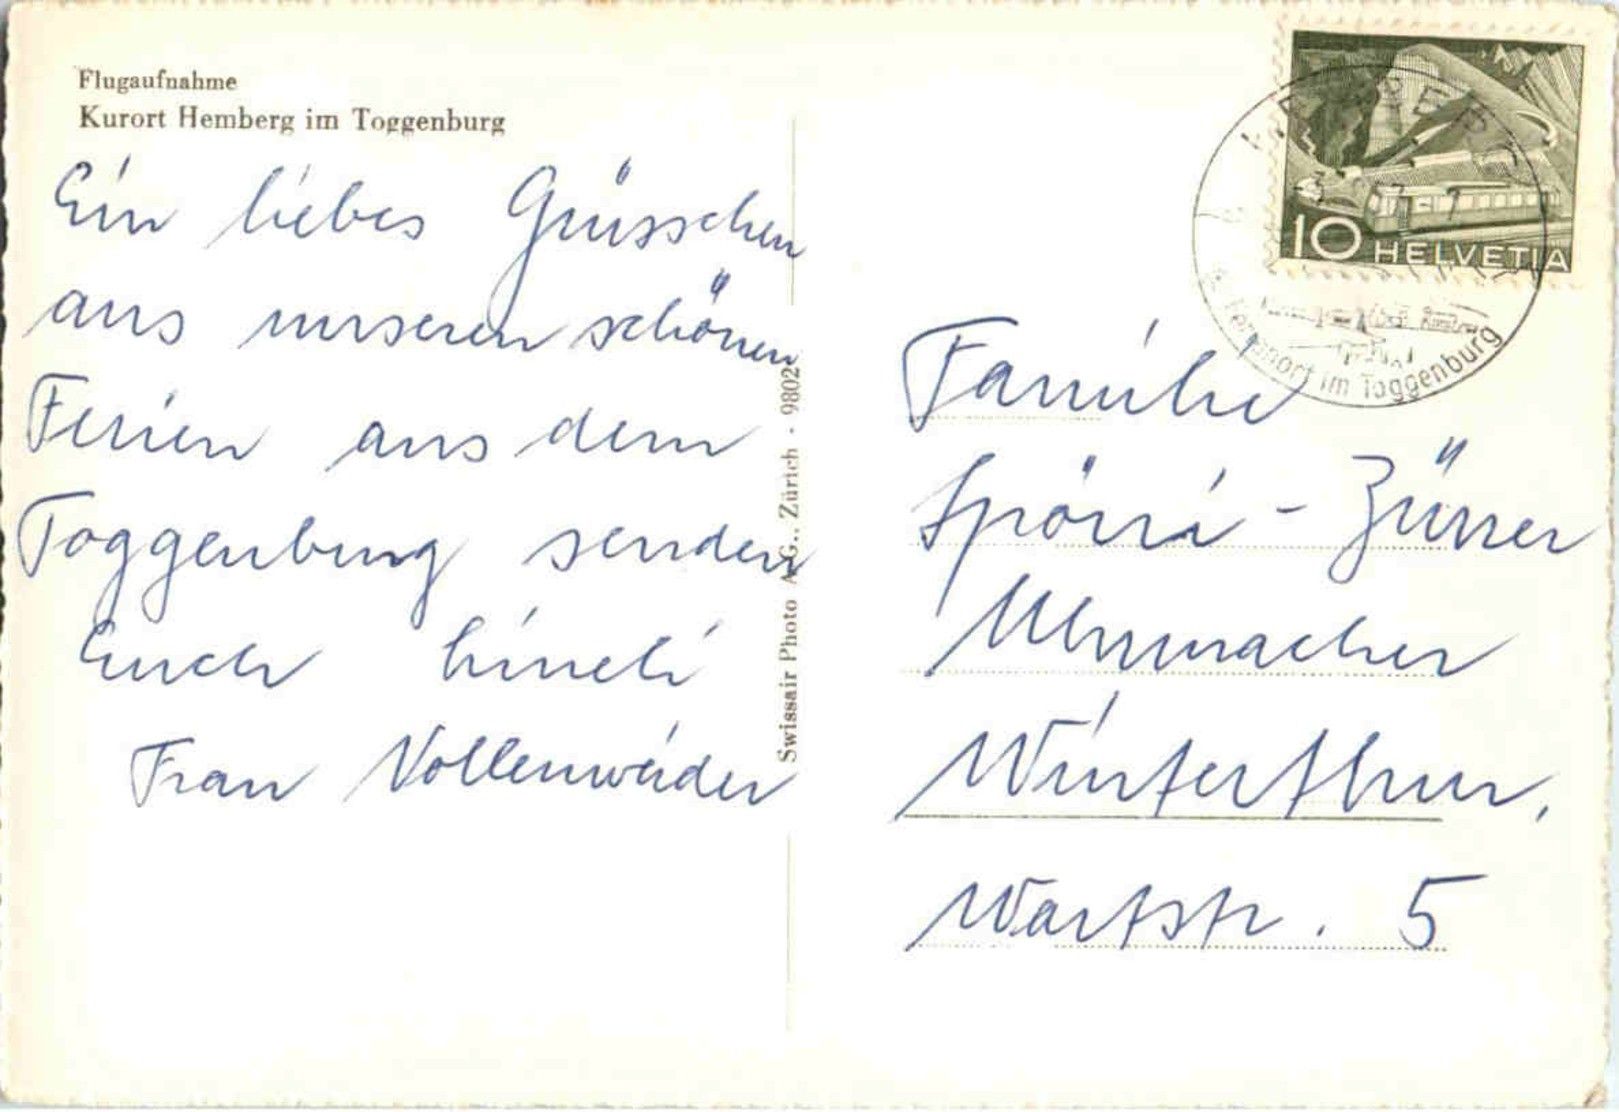 Flugaufnahme
Kurort Hemberg im Toggenburg
Ein liebes Grüsschen
aus unseren schönen
Ferien aus dem
Toggenburg senden
Euch
Frau Vollenweider
Swissair Photo AG., Zürich · 9802
HEMBERG
10 HELVETIA
Ferienort im Toggenburg
Familie
Spörri - Zürrer
Uhrmacher
Winterthur,
Wartstr. 5